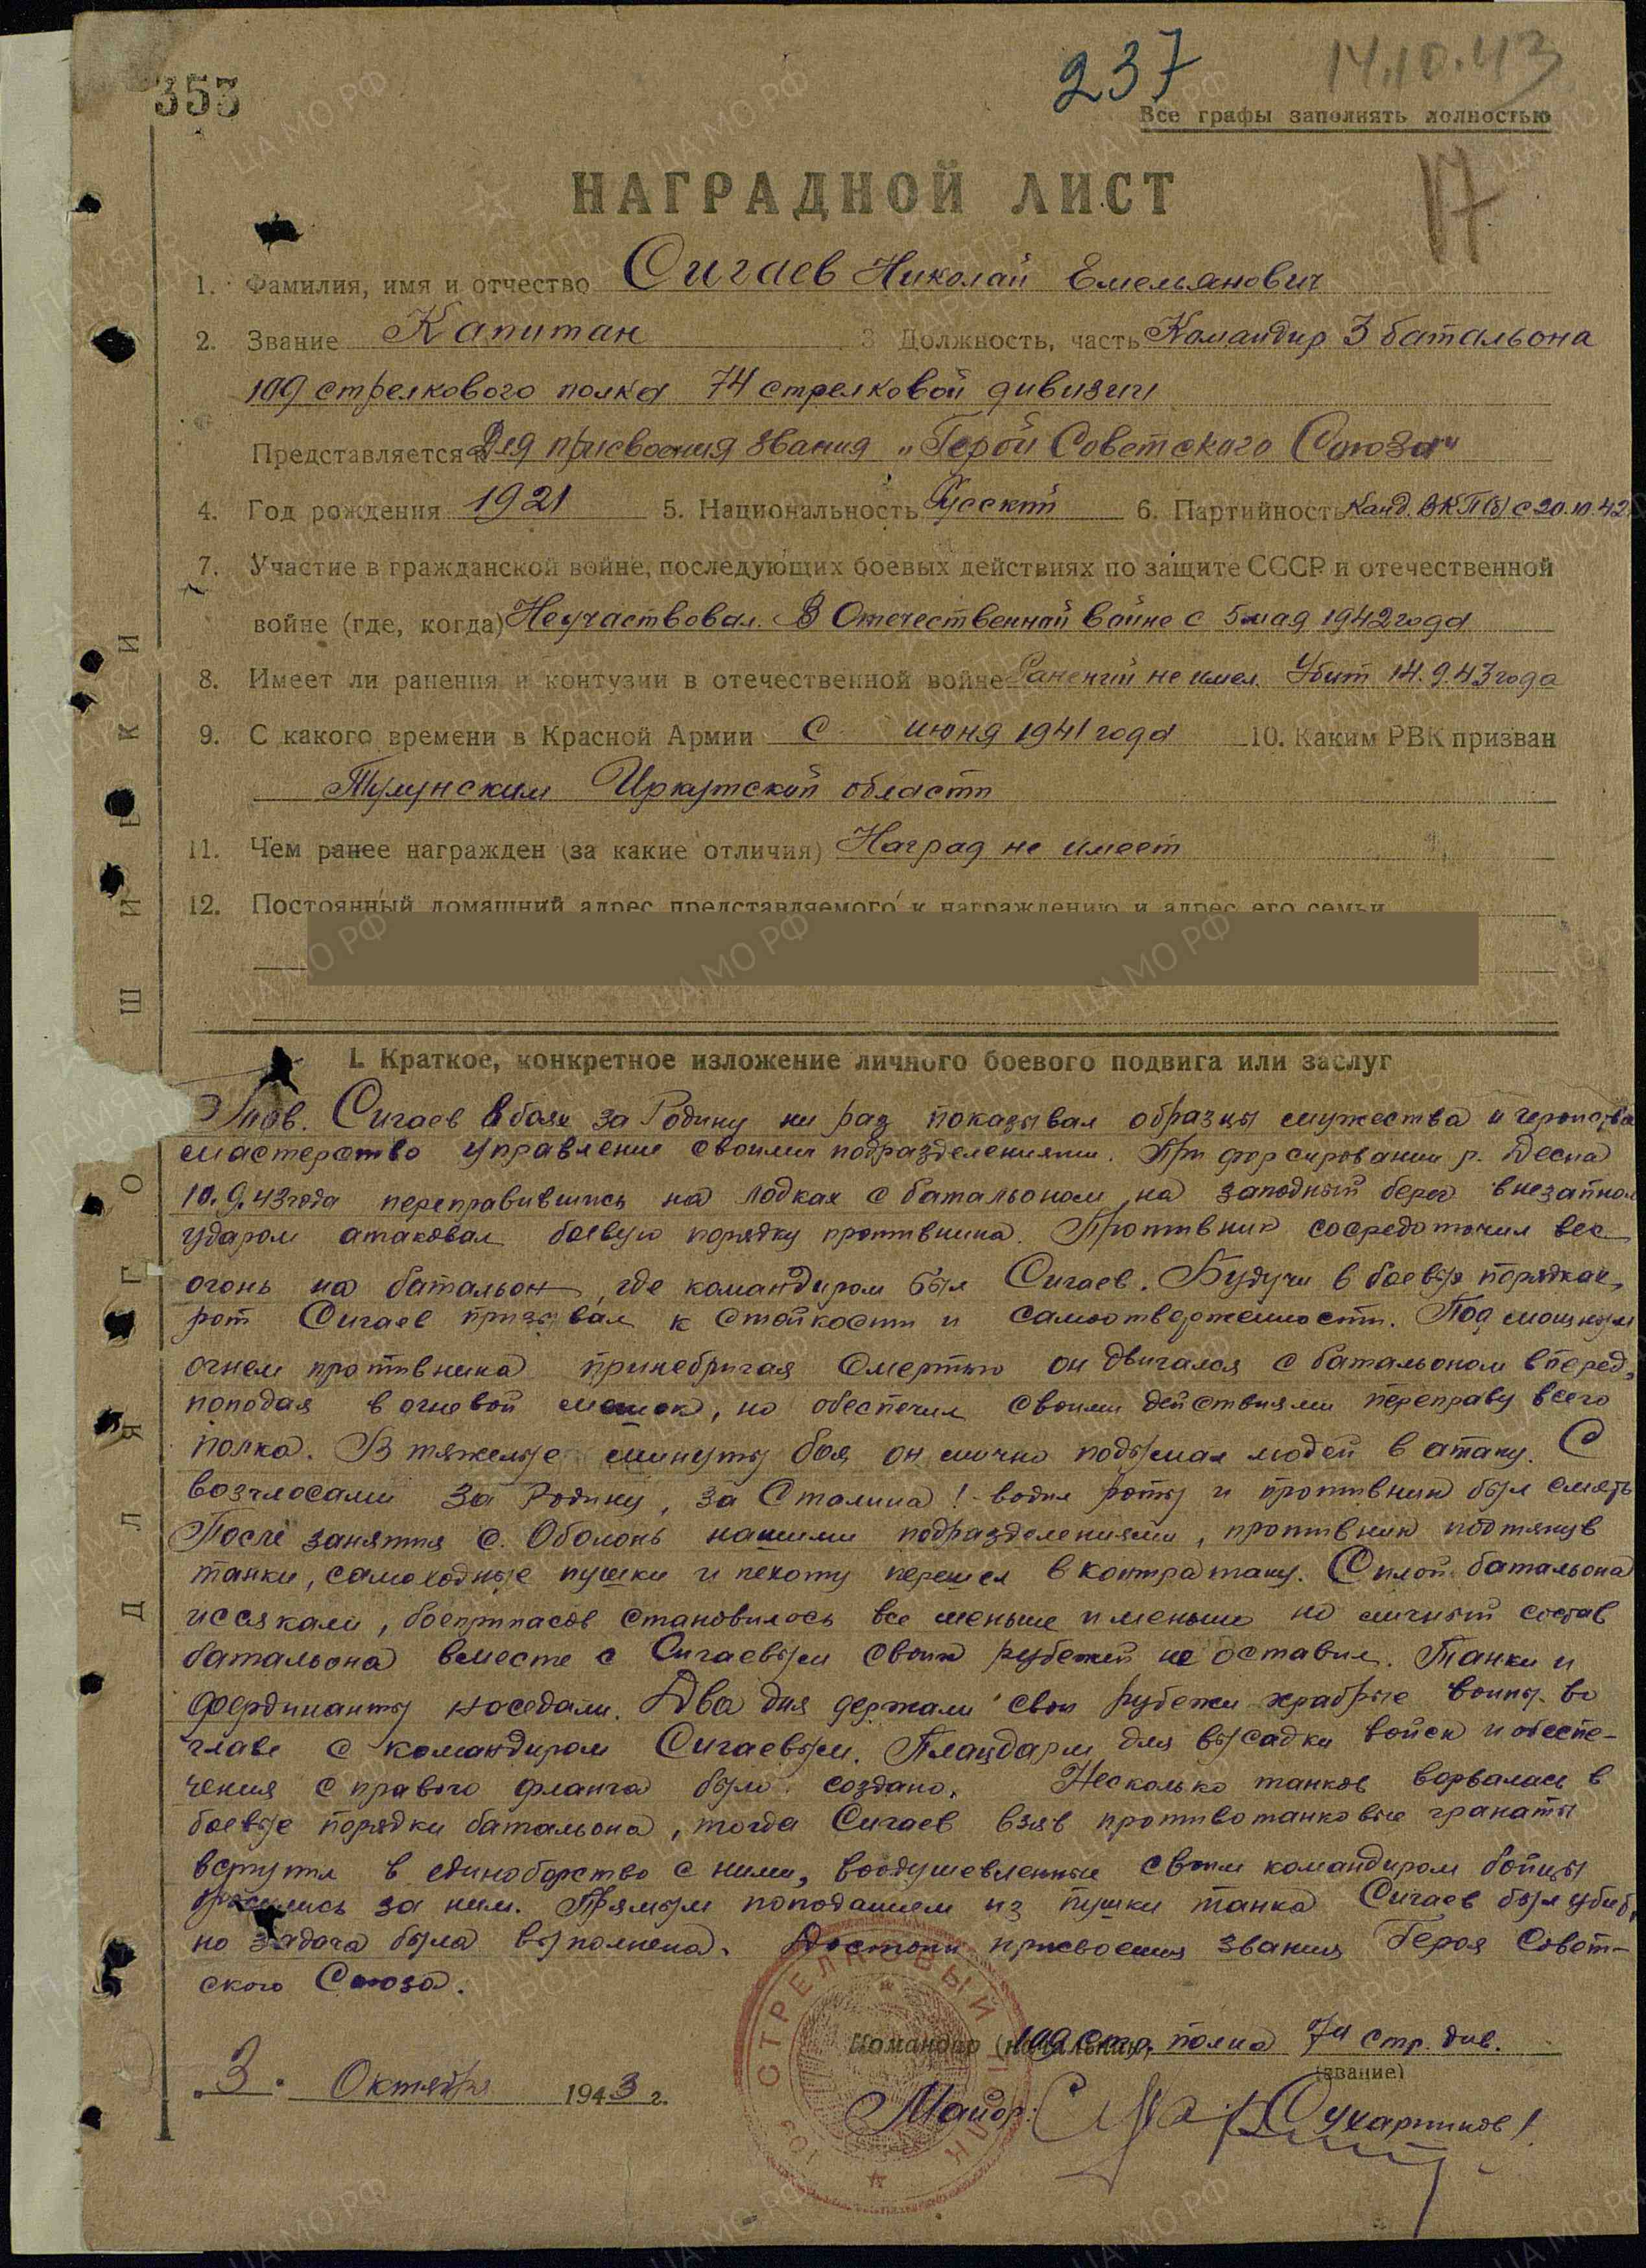 353
237
14.10.43
Все графы заполнять полностью
17
НАГРАДНОЙ ЛИСТ
1. Фамилия, имя и отчество Сигаев Николай Емельянович
2. Звание Капитан 3 Должность, часть Командир 3 батальона
109 стрелкового полка 74 стрелковой дивизии
Представляется к Для присвоения звания „Герой Советского Союза"
4. Год рождения 1921 5. Национальность Русский 6. Партийность Канд. ВКП(б) с 20.10.42
7. Участие в гражданской войне, последующих боевых действиях по защите СССР и отечественной
войне (где, когда) Неучаствовал. В Отечественной войне с 5 мая 1942 года
8. Имеет ли ранения и контузии в отечественной войне Ранений не имел. Убит 14.9.43 года
9. С какого времени в Красной Армии С июня 1941 года 10. Каким РВК призван
Тулунским Иркутской области
11. Чем ранее награжден (за какие отличия) Наград не имеет
12. Постоянный домашний адрес представляемого к награждению и адрес его семьи
ДЛЯ ПОДШИВКИ
I. Краткое, конкретное изложение личного боевого подвига или заслуг
Тов. Сигаев в боях за Родину ни раз показывал образцы мужества и геройства
мастерство управление своими подразделениями. При форсировании р. Десна
10.9.43 года переправившись на лодках с батальоном на западный берег внезапном
ударом атаковал боевую порядку противника. Противник сосредоточил вес
огонь на батальон, где командиром был Сигаев. Будучи в боевых порядках,
рот Сигаев призывал к стойкости и самоотверженности. Под мощным
огнем противника принебригая смертью он двигался с батальоном вперед,
поподая в огневой мешок, но обеспечил своими действиями переправу всего
полка. В тяжелые минуты боя он лично подымал людей в атаку. С
возгласами за Родину, за Сталина! водил роты и противник был смять
После занятия с. Оболонь нашими подразделениями, противник подтянув
танки, самоходные пушки и пехоту перешел в контратаку. Силой батальона
иссякали, боеприпасов становилось все меньше и меньше но личный состав
батальона вместе с Сигаевым своих рубежей не оставил. Танки и
фердинанты наседали. Два дня держали свои рубежи храбрые воины во
главе с командиром Сигаевым. Плацдарм для высадки войск и обеспе-
чения с правого фланга было создано. Несколько танков ворвалась в
боевые порядки батальона, тогда Сигаев взяв противотанковые гранаты
вступил в единоборство с ними, воодушевленные своим командиром бойцы
бросились за ним. Прямым поподанием из пушки танка Сигаев был убит,
но задача была выполнена. Достоин присвоения звания Героя Совет-
ского Союза.
Командир (начальник) 109 стр. полка 74 стр. див.
(звание)
„3" Октября 1943 г.
Майор: Сухарников
СТРЕЛКОВЫЙ ПОЛК 109